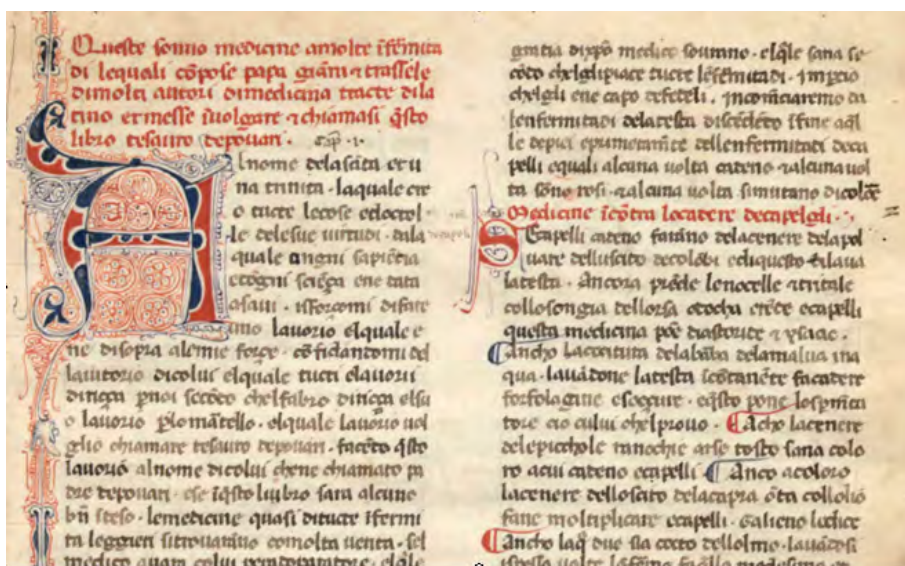 Queste sonno medicine amolte ĩfermita
di lequali cõpose papa giãni ⁊ trassele
dimolti autori dimedicina tracte dila
tino et messe ĩuolgare ⁊ chiamasi q̃sto
libro tesauro depouari. cap̃ .i.
Al nome dela sãta et u
na trinita . laquale cre
o tucte lecose edoctol
le delesue uirtudi . dala
quale angni sapiẽtia
ecogni sciẽça ene data
asaui . isforçomi difare
uno lauorio elquale e
ne disopra alemie forçe . cõfidantomi del
laiutorio dicolui elquale tucti elauorii
diriçça p noi secõdo chelfabro diriçça elsu
o lauorio p lo martello . elquale lauorio uol
glio chiamare tesauro depouari . facẽdo q̃sto
lauorio alnome dicolui chene chiamato pa
dre depouari . ese ĩq̃sto libro sara alcuno
bñ steso . lemedicine quasi ditucte ĩfermi
ta leggieri sitrouarãno comolta uerita . sel
medico auara colui elq̃le
gratia dixpõ medico sourano . elq̃le sana se
cõdo chelglipiace tucte lẽfermitadi . Impcio
chelgli ene capo defedeli . Incominciaremo da
lenfermitadi delatesta discẽdẽdo ĩfine aq̃l
le depiei eprimeramẽte dellenfermitadi deca
pelli equali alcuna uolta cadeno ⁊alcuna uol
ta sõno rosi . ⁊alcuna uolta simutano dicolore
Medicine ĩcõtra locadere decapelgli .
Se capelli cadeno farãno delacenere delapol
uare delluscito decolõbi ediquesto
latesta . Ancora prẽde lenocelle ⁊tritale
collosongia dellorsa ecapelli
questa medicina põe diascoride ⁊ ysiaac .
Ancho lacocitura delababa delamalua ina
qua . lauãdone latesta facadere
forfolagine . eq̃sto pone
tore cio cului chelprouo . Acho lacenere
delepicchole ranochie arse tosto sana colo
ro acui cadeno ecapelli Anco acoloro
lacenere delloscito delacapra õta collolio
fane moltiplicare ecapelli . Galieno lodice
Ancho laq̃ oue sia cocto dellolmo . lauãdosi